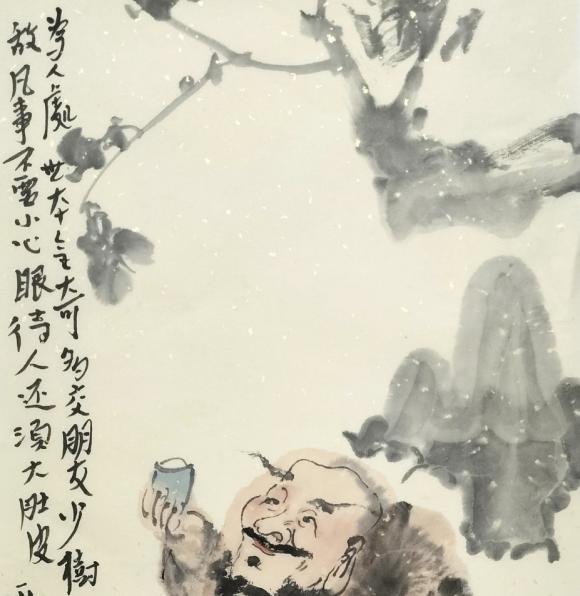 为人處世大大可多交朋友少樹
敌凡事不需小心眼待人还须大肚皮